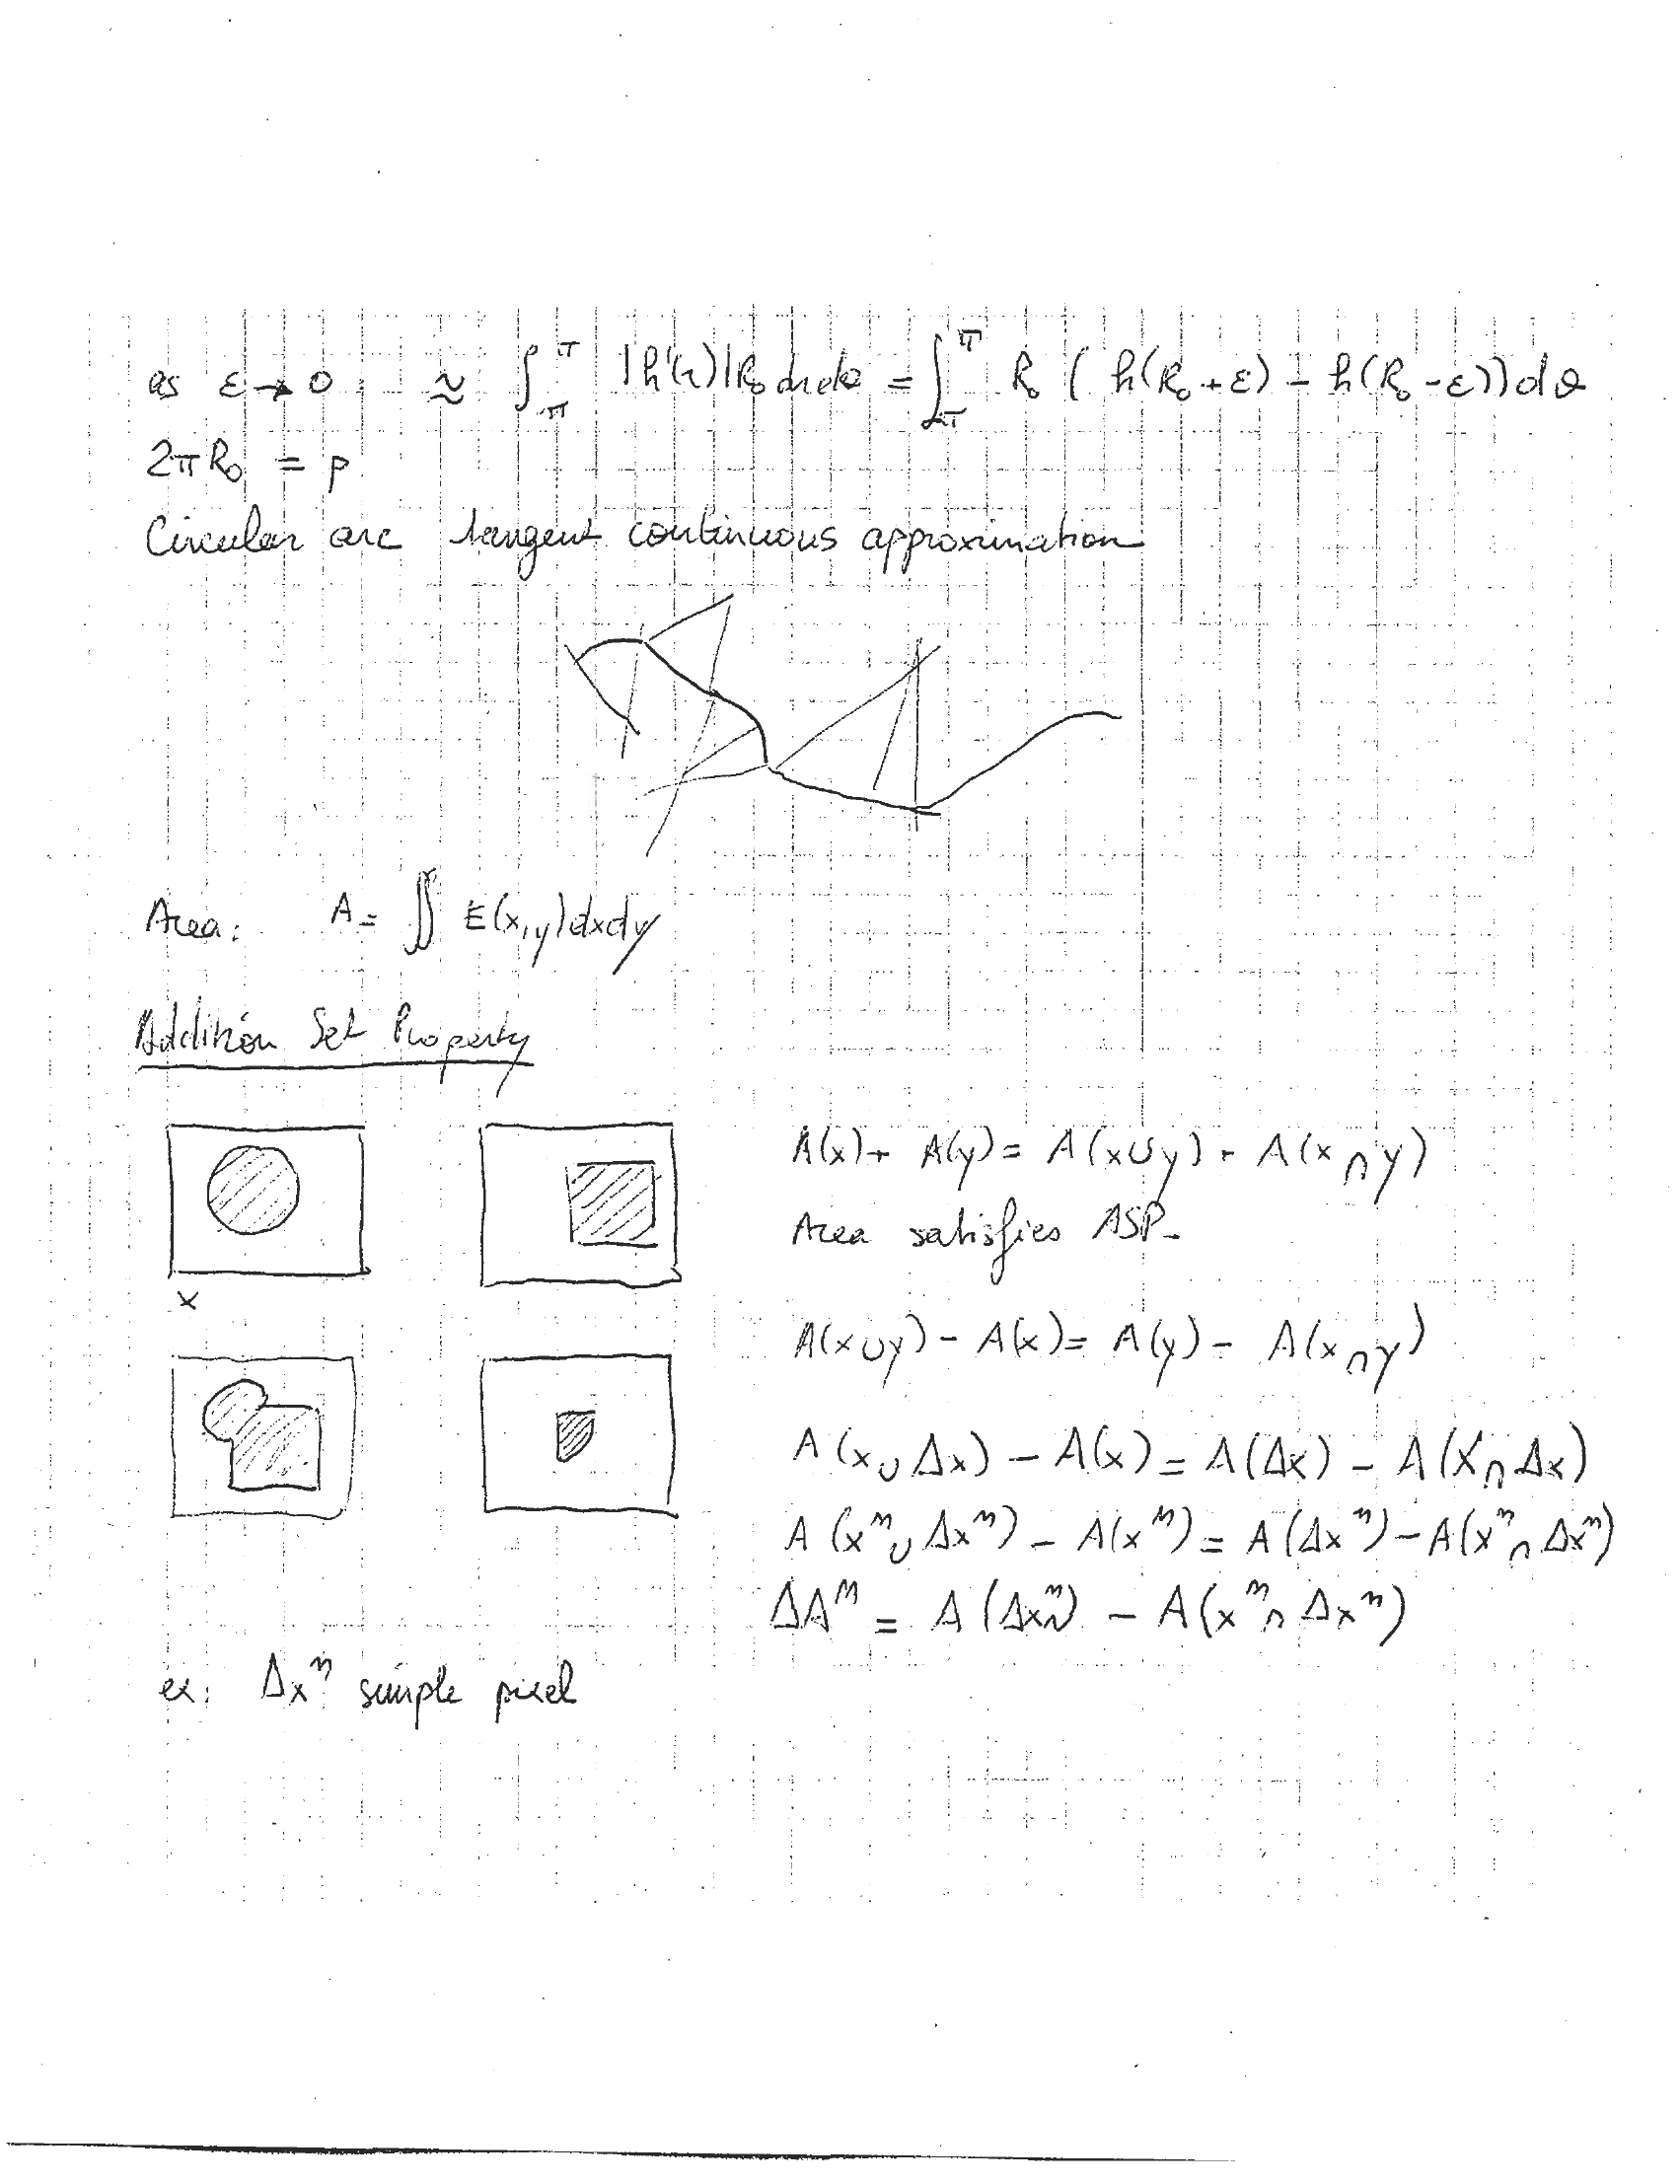 as ε → 0 ≈ ∫_{-π}^{π} |h'(r)| R₀ dr dθ = ∫_{-π}^{π} R₀ ( h(R₀+ε) - h(R₀-ε)) dθ
2πR₀ = p
Circular arc tangent continuous approximation
Area: A = ∬ E(x,y) dxdy
Addition Set Property
A(x) + A(y) = A(x∪y) + A(x∩y)
Area satisfies ASP.
x
A(x∪y) - A(x) = A(y) - A(x∩y)
A(x∪Δx) - A(x) = A(Δx) - A(X∩Δx)
A(xⁿ∪Δxⁿ) - A(xⁿ) = A(Δxⁿ) - A(xⁿ∩Δxⁿ)
ΔAⁿ = A(Δxⁿ) - A(xⁿ∩Δxⁿ)
ex: Δxⁿ simple pixel